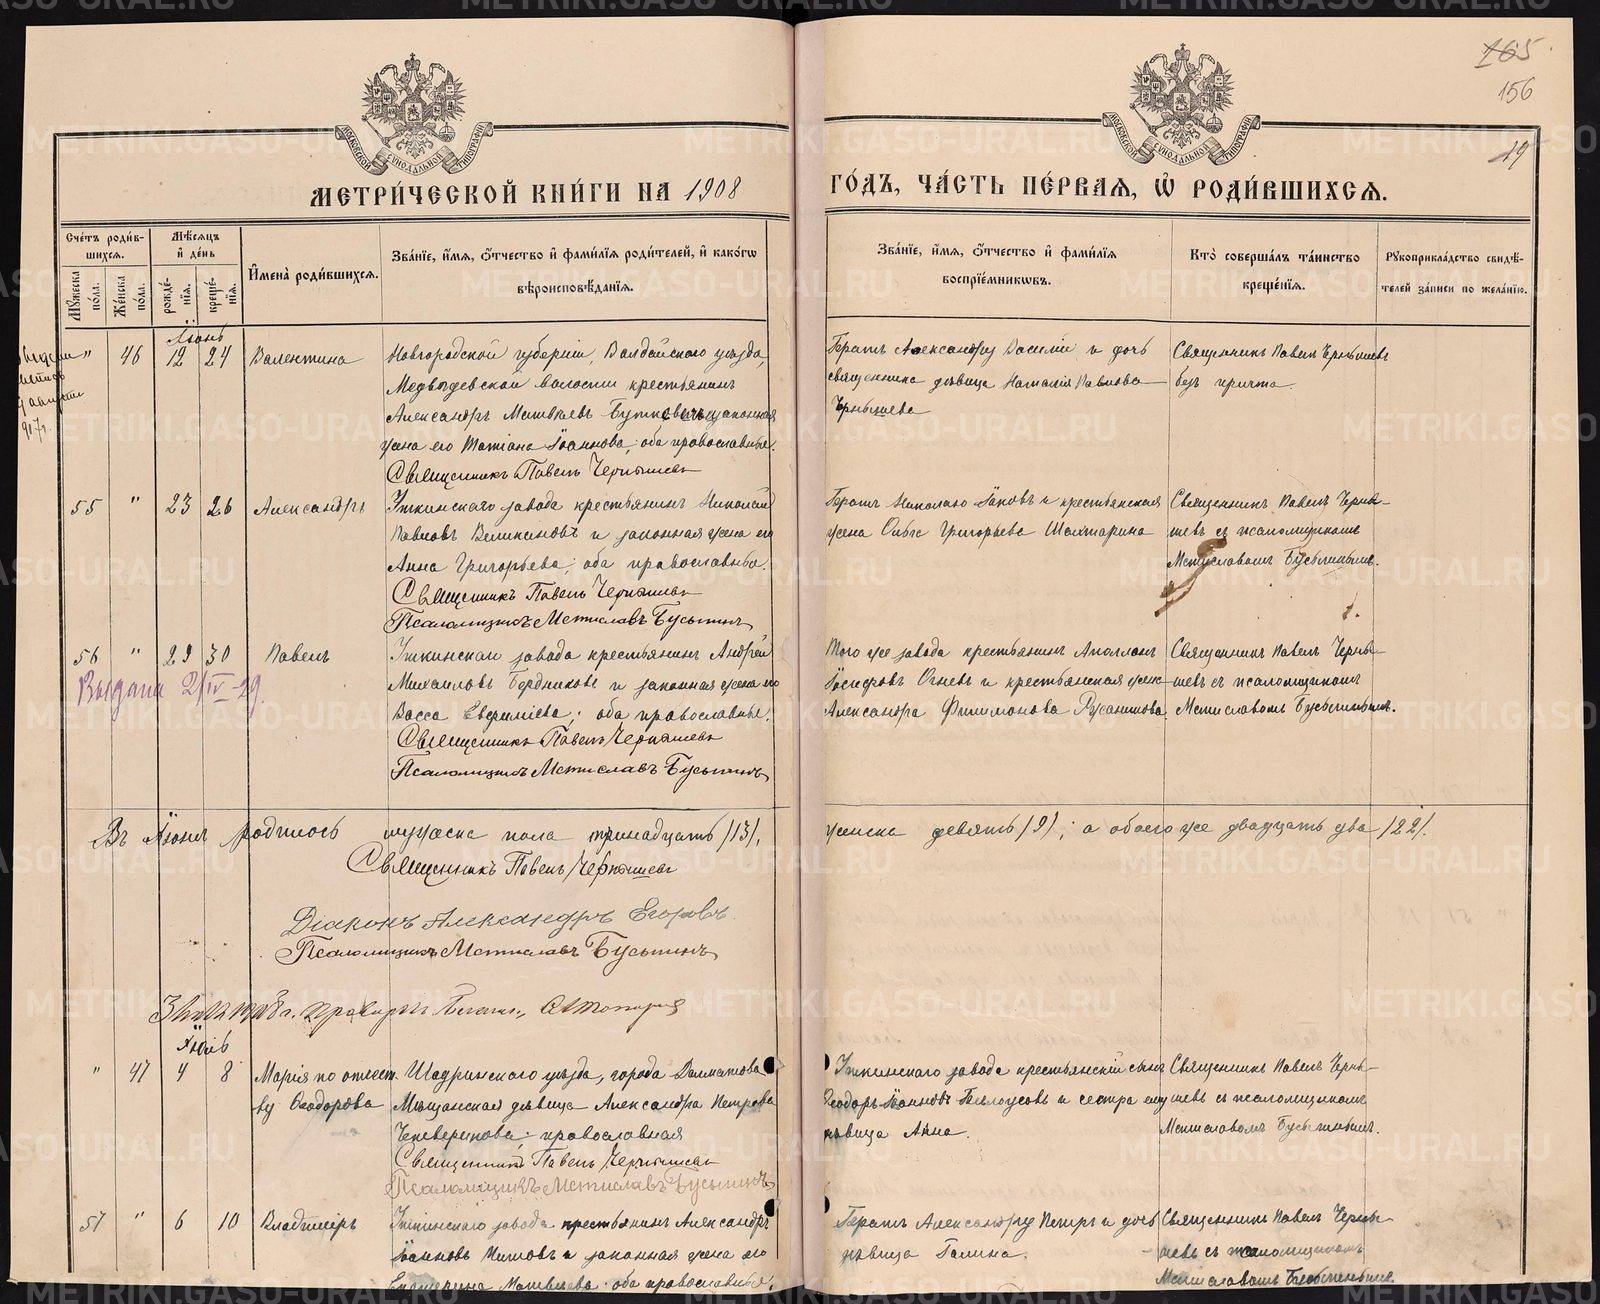 165
156
19
МОСКОВСКОЙ СѴНОДАЛЬНОЙ ТИПОГРАФІИ
МОСКОВСКОЙ СѴНОДАЛЬНОЙ ТИПОГРАФІИ
МЕТРИ́ЧЕСКОЙ КНИ́ГИ НА 1908 ГО́ДЪ, ЧА́СТЬ ПЕ́РВАЯ, Ѽ РОДИ́ВШИХСЯ.
Сче́тъ роди́вшихся.
Мꙋ́жеска по́ла.
Же́нска по́ла.
Мѣ́сяцъ и҆ де́нь
рожде́нїя.
креще́нїя.
И҆мена̀ роди́вшихся.
Зва́нїе, и҆́мя, ѻ҆́тчество и҆ фами́лїя роди́телей, и҆ како́гѡ вѣроисповѣ́данїя.
Зва́нїе, и҆́мя, ѻ҆́тчество и҆ фами́лїя воспрїе́мникѡвъ.
Кто̀ соверша́лъ та́инство креще́нїя.
Рꙋкоприкла́дство свидѣ́телей за́писи по жела́нїю.
Іюнь
" 46 12 24 Валентина
Новгородской губерніи, Валдайского уѣзда,
Медвѣдевской волости крестьянинъ
Александръ Матвѣевъ законная
жена его Татіана Іоаннова, оба православные.
Священникъ Павелъ Чернышевъ
Братъ Александру Василій и дочь
священника дѣвица Наталія Павлова
Чернышева
Священникъ Павелъ Чернышевъ
безъ причта.
55 " 23 26 Александръ
Уткинскаго завода крестьянинъ Николай
Павловъ Великановъ и законная жена его
Анна Григорьева, оба православные.
Священникъ Павелъ Чернышевъ
Псаломщикъ Мстиславъ Бусыгинъ
Братъ Николаю Іаковъ и крестьянская
жена Ольга Григорьева
Священникъ Павелъ Черны-
шевъ съ псаломщикомъ
Мстиславомъ Бусыгинымъ.
56 " 29 30 Павелъ
Выдана 2/IV-29.
Уткинскаго завода крестьянинъ Андрей
Михаиловъ Бердниковъ и законная жена его
Васса Евфиміева; оба православные.
Священникъ Павелъ Чернышевъ
Псаломщикъ Мстиславъ Бусыгинъ
Того же завода крестьянинъ Аполлонъ
Іосифовъ Огневъ и крестьянская жена
Александра Филимонова Русанова
Священникъ Павелъ Черны-
шевъ съ псаломщикомъ
Мстиславомъ Бусыгинымъ.
Въ Іюнѣ родилось мужеска пола тринадцать /13/, женска девять /9/; а обоего же двадцать два /22/.
Священникъ Павелъ Чернышевъ
Діаконъ Александръ Егоровъ.
Псаломщикъ Мстиславъ Бусыгинъ
Іюль
" 47 4 8 Марія по отчест-
ву Ѳеодорова
Шадринскаго уѣзда, города Далматова
мѣщанская дѣвица Александра Петрова
православная
Священникъ Павелъ Чернышевъ
Псаломщикъ Мстиславъ Бусыгинъ
Уткинскаго завода крестьянскій сынъ
Ѳеодоръ Іоанновъ Бѣлоусовъ и сестра ему
дѣвица Анна.
Священникъ Павелъ Черны-
шевъ съ псаломщикомъ
Мстиславомъ Бусыгинымъ.
57 " 6 10 Владиміръ
Уткинскаго завода крестьянинъ Александръ
Іоанновъ и законная жена его
Екатерина Матвѣева, оба православные.
Братъ Александру Петръ и дочь
дѣвица Галина.
Священникъ Павелъ Черны-
шевъ съ псаломщикомъ
Мстиславомъ Бусыгинымъ.
METRIKI.GASO-URAL.RU